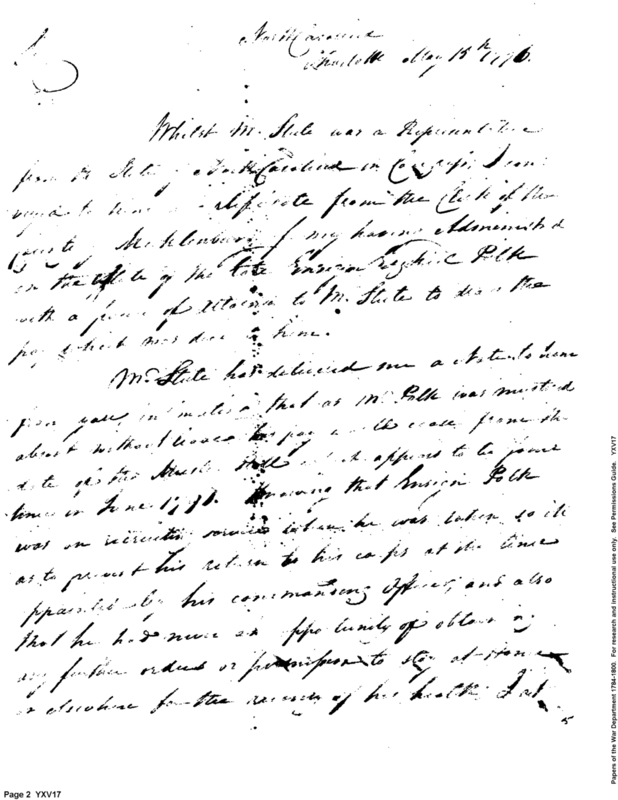 North Carolina
Charlotte May 15th 1796.
Whilst Mr. Stele was a Representative
from the State of North Carolina in Congress, I con
veyed to him a certificate from the Clerk of the
County of Mecklenburg of my having Administred
on the Estate of the late Ensign Ezekiel Polk
with a power of attorney to Mr. Stele to draw the
pay which was due to him.
Mr. Stele has delivered me a Note to him
from you, in that as Mr. Polk was mustered
absent without leave his pay from the
date of the Muster Roll which appears to be some
time in June Knowing that Ensign Polk
was on recruiting service when he was taken so ill
as to prevent his return to his corps at the time
appointed by his commanding Officer; and also
that he had never an oppertunity of obtaining
any further orders or permission to stay at home
or elsewhere for the recovery of his health. I at
Page 2 YXV17
Papers of the War Department 1784-1800. For research and instructional use only. See Permissions Guide. YXV17